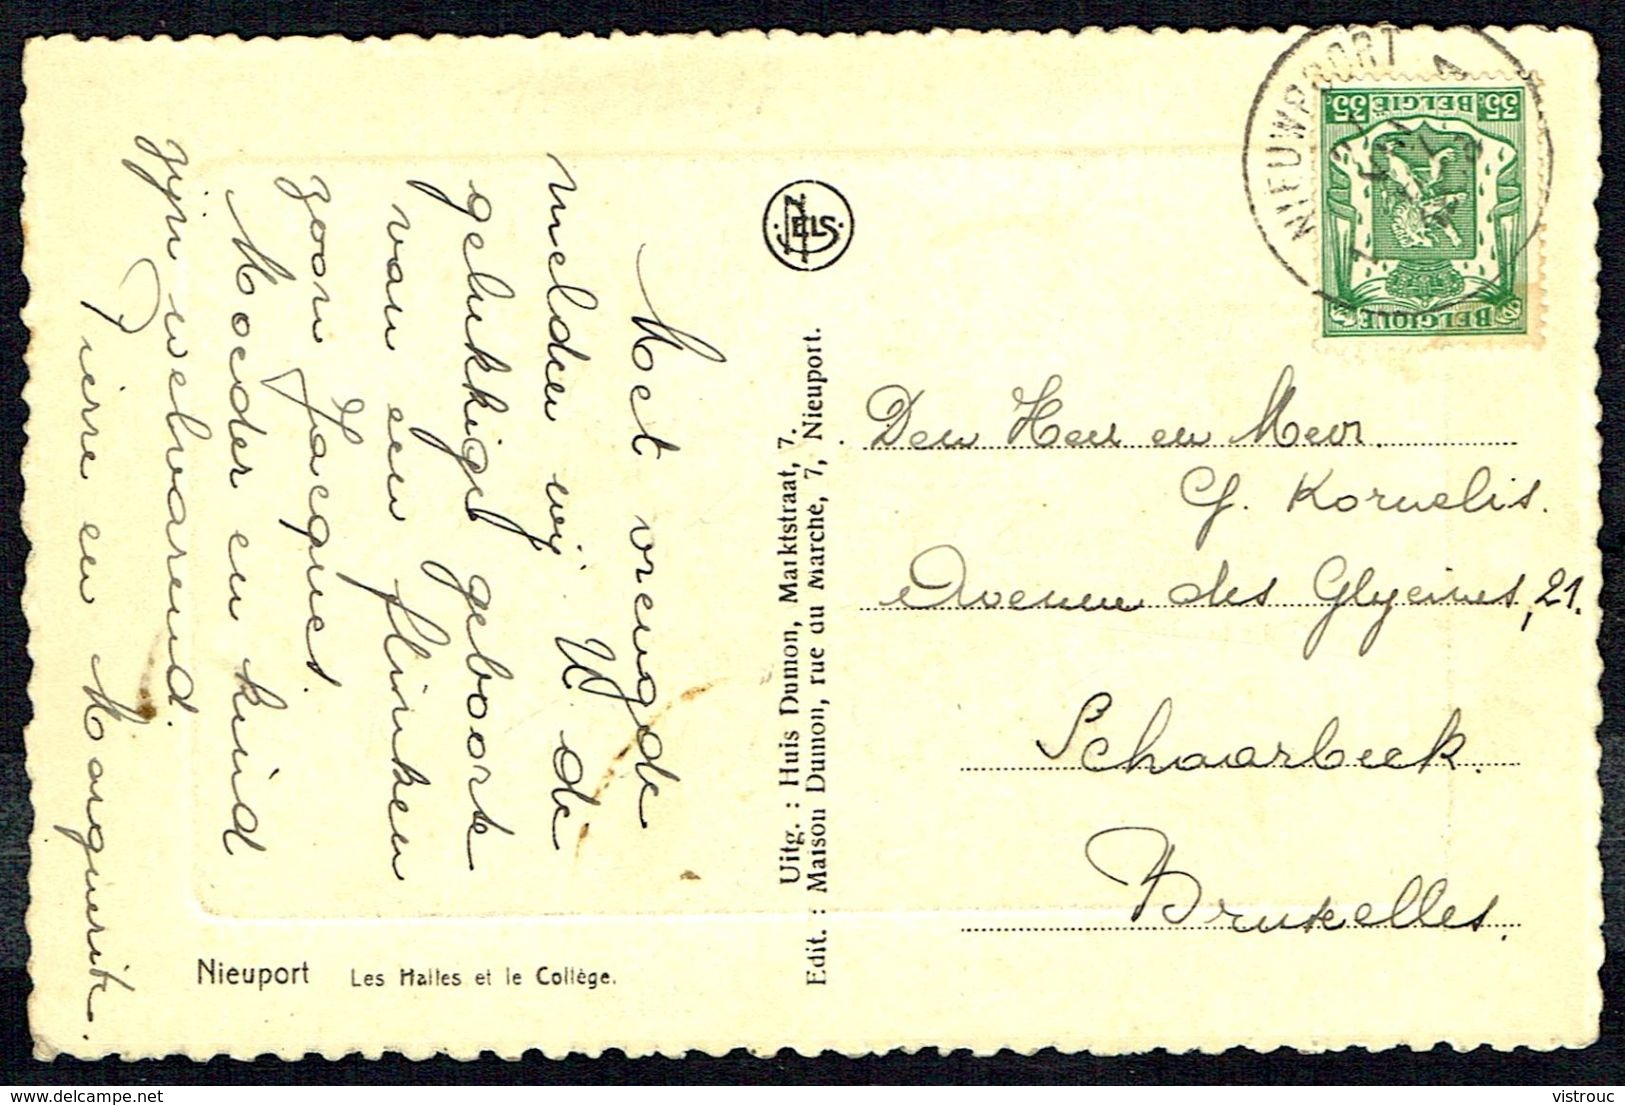 Met vreugde
melden wij U de
gelukkige geboorte
van een flinken
zoon Jacques.
Moeder en kind
zijn welvarend.
Pierre en Marguerite.
Nieuport Les Halles et le Collège.
NELS
Uitg. : Huis Dumon, Marktstraat, 7.
Edit. : Maison Dumon, rue du Marche, 7, Nieuport.
NIEUWPOORT
35c BELGIË 35c
BELGIQUE
Den Heer en Mevr.
G. Kornelis.
Avenue des Glycines, 21.
Schaarbeek.
Bruxelles.
delcampe.net
vistrouc